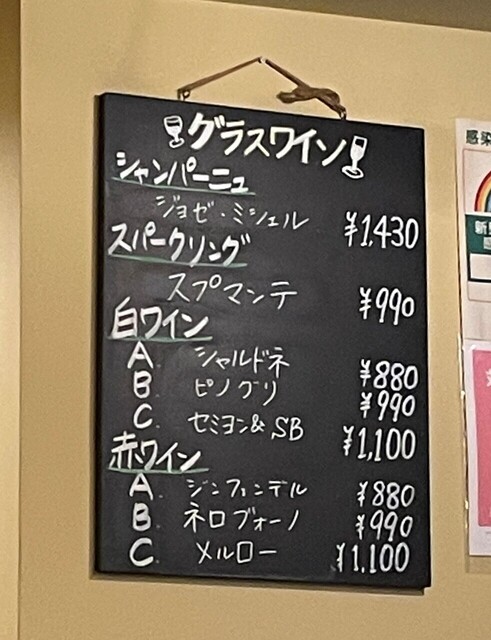 グラスワイン
シャンパーニュ
ジョゼ・ミシェル ¥1,430
スパークリング
スプマンテ ¥990
白ワイン
A. シャルドネ ¥880
B. ピノグリ ¥990
C. セミヨン&SB ¥1,100
赤ワイン
A. ジンファンデル ¥880
B. ネロブォーノ ¥990
C. メルロー ¥1,100
感染